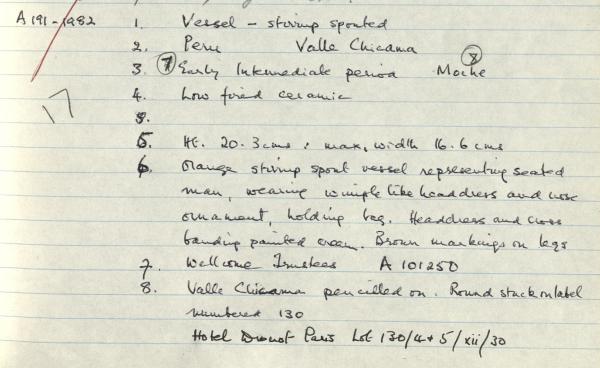 A 191-1982 1. Vessel - stirrup spouted
2. Peru Valle Chicama
3. (7) Early Intermediate period Moche (8)
4. Low fired ceramic
5.
5. Ht. 20.3cms : max. width 16.6 cms
6. Orange stirrup spout vessel representing seated
man, wearing wimple like headdress and nose
ornament, holding bag. Headdress and cross
banding painted cream. Brown markings on legs
7. Wellcome Trustees A 101250
8. Valle Chicama pencilled on. Round stuck on label
numbered 130
Hotel Drouot Paris Lot 130/4+5/xii/30
17